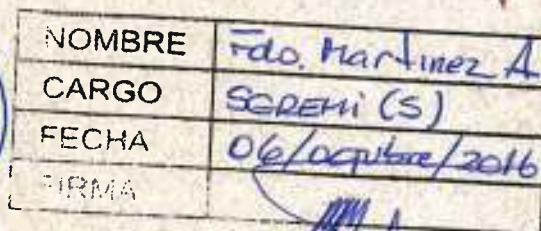 NOMBRE Fdo. Martinez A
CARGO SEREMI (S)
FECHA 06/octubre/2016
FIRMA